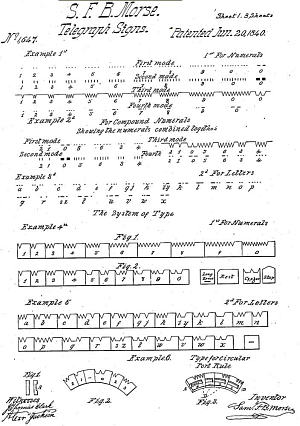 S. F. B. Morse.
Sheet 1. 3 Sheets
Telegraph Signs.
No. 1647.
Patented Jun. 20 1840.
Example 1st
1st For Numerals
First mode
1 2 3 4 5 6 7 8 9 0 0
Second mode
1 2 3 4 5 6 7 8 9 0 0
Third mode
1 2 3 4 5 6 7 8 9 0
Fourth mode
Example 2d
For Compound Numerals
Showing the numerals combined together
First mode
Third mode
Second mode
Fourth
Example 3d
2d For Letters
a b c d e f gj h iy k l m n o p
q r sz t u v w x
The System of Type
Example 4th
1st For Numerals
Fig. 1.
1 2 3 4 5 6 7 8 9 0
Fig. 2.
1 2 3 4 5 6 7 8 9 0
Rest
Stop
Example 5
2d For Letters
a b c d e f gj h iy k l m n
o p q r sz t u v w x
Example 6.
Type for circular
Port Rule
Fig. 1
Fig. 2.
Fig. 3.
Witnesses
Inventor
Saml. F. B. Morse